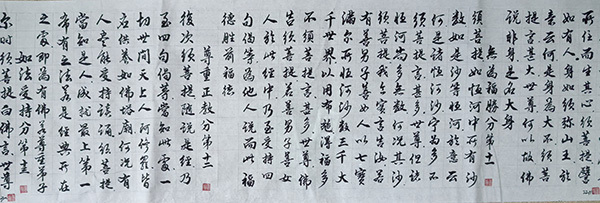 所住而生其心須菩提譬
如有人身如須弥山王於
意云何是身為大不須菩
提言甚大世尊何以故佛
說非身是名大身
無為福勝分第十一
須菩提如恒河中所有沙
數如是沙等恒河於意云
何是諸恒河沙寧為多不
須菩提言甚多世尊但諸
恒河尚多無數何況其沙
須菩提我今實言告汝若
有善男子善女人以七寶
滿尔所恒河沙數三千大
千世界以用布施得福多
不須菩提言甚多世尊佛
告須菩提若善男子善女
人於此經中乃至受持四
句偈等為他人說而此福
德勝前福德
尊重正教分第十二
復次須菩提隨說是經乃
至四句偈等當知此處一
切世間天人阿修羅皆
應供養如佛塔廟何況有
人盡能受持讀誦須菩提
當知是人成就最上第一
希有之法若是經典所在
之處即為有佛若尊重弟子
如法受持分第十三
尔时須菩提白佛言世尊